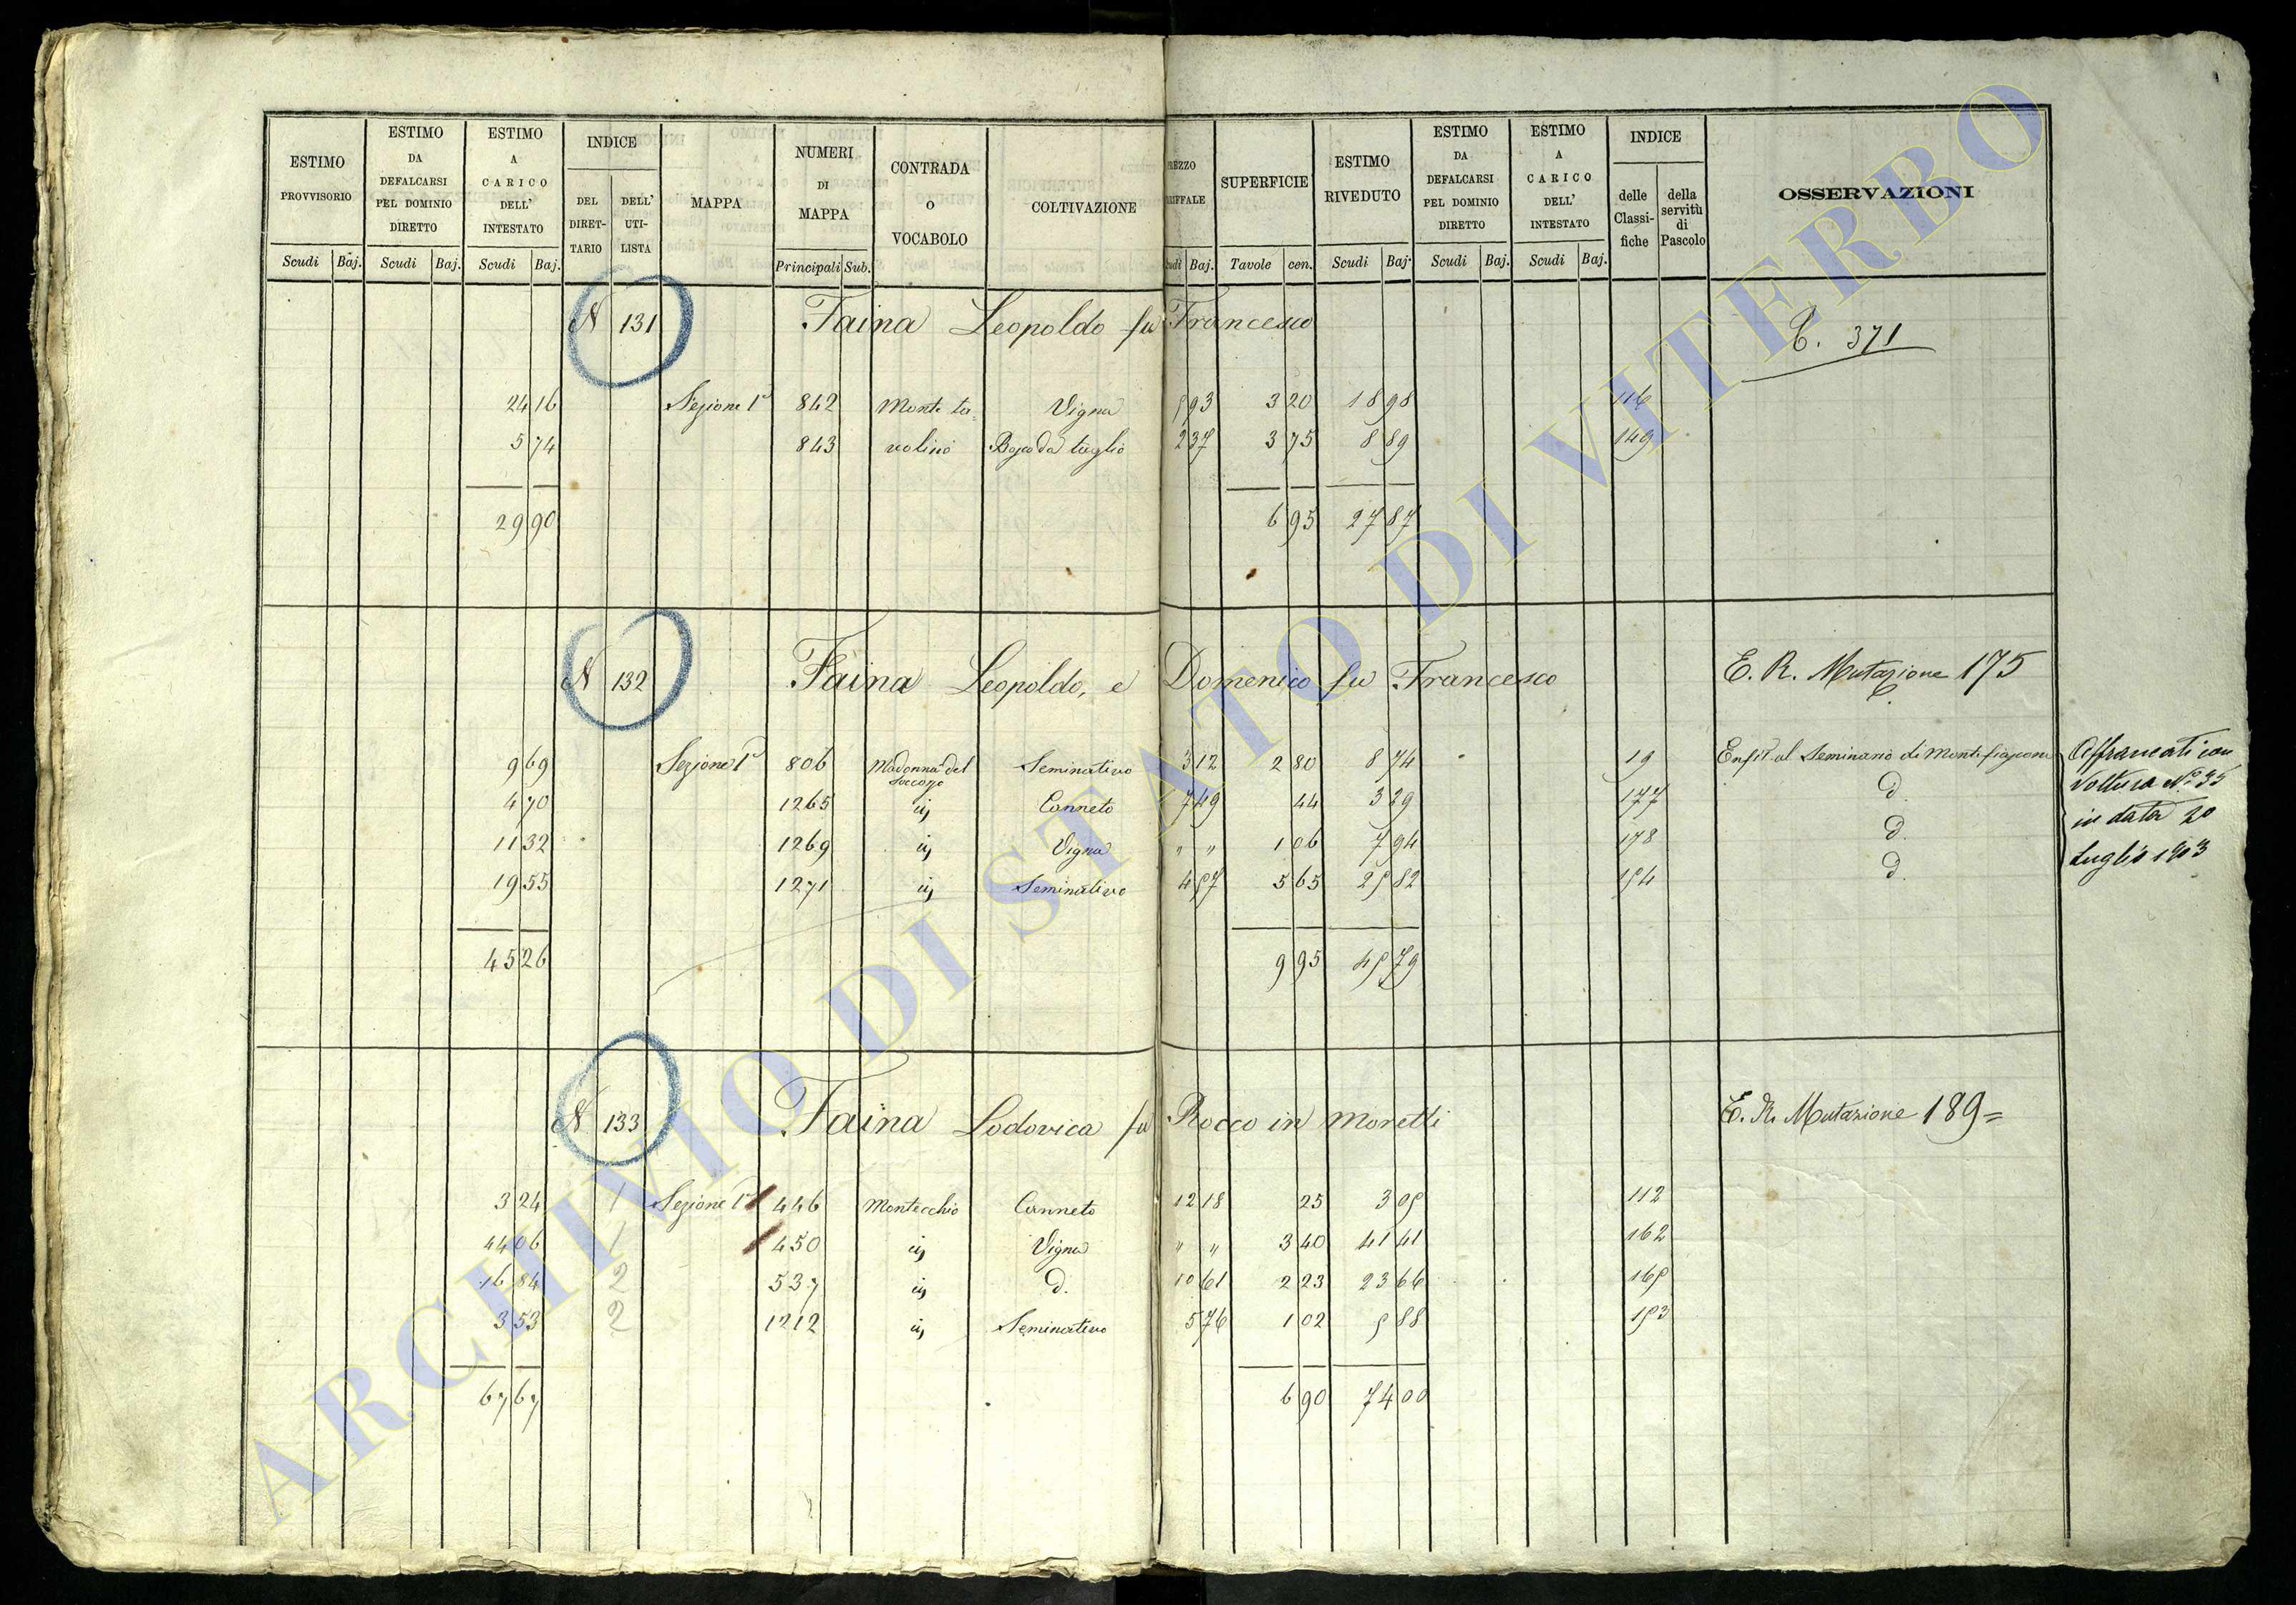 ESTIMO PROVVISORIO Scudi Baj.
ESTIMO DA DEFALCARSI PEL DOMINIO DIRETTO Scudi Baj.
ESTIMO A CARICO DELL' INTESTATO Scudi Baj.
INDICE DEL DIRET-TARIO DELL' UTI-LISTA
MAPPA
NUMERI DI MAPPA Principali Sub.
CONTRADA O VOCABOLO
COLTIVAZIONE
REZZO RIFFALE udi Baj.
SUPERFICIE Tavole cen.
ESTIMO RIVEDUTO Scudi Baj.
ESTIMO DA DEFALCARSI PEL DOMINIO DIRETTO Scudi Baj.
ESTIMO A CARICO DELL' INTESTATO Scudi Baj.
INDICE delle Classi-fiche della servitù di Pascolo
OSSERVAZIONI
N 131 Faina Leopoldo fu Francesco 371
24 16 Sezione 1ª 842 Monte ta- Vigna 5 93 3 20 18 98 116
5 74 843 volino Bosco da taglio 2 37 3 75 8 89 149
29 90 6 95 27 87
N 132 Faina Leopoldo, e Domenico fu Francesco E. R. Mutazione 175
9 69 Sezione 1ª 806 Madonna del Soccorso Seminativo 3 12 2 80 8 74 19 Enfit. al Seminario di Montefiascone
4 70 1265 ij Canneto 7 49 44 3 29 177 d.
11 32 1269 ij Vigna " " 1 06 7 94 178 d.
19 55 1271 ij Seminativo 4 57 5 65 25 82 154 d.
Affrancati con
voltura Nº 35
in data 20
Luglio 1903
45 26 9 95 45 79
N 133 Faina Lodovica fu Rocco in Moretti E. R. Mutazione 189=
3 24 1 Sezione 1ª 446 Montecchio Canneto 12 18 25 3 05 112
44 06 1 450 ij Vigna " " 3 40 41 41 162
16 84 2 537 ij d. 10 61 2 23 23 66 165
3 53 2 1212 ij Seminativo 5 76 1 02 5 88 153
67 67 6 90 74 00
ARCHIVIO DI STATO DI VITERBO